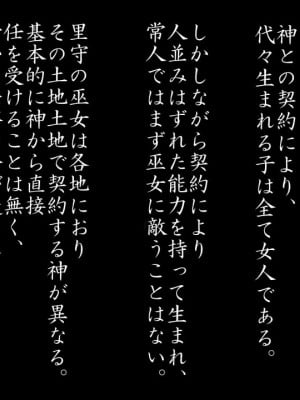 神との契約により、
代々生まれる子は全て女人である。
しかしながら契約により
人並みはずれた能力を持って生まれ、
常人ではまず巫女に敵うことはない。
里守の巫女は各地におり
その土地土地で契約する神が異なる。
基本的に神から直接
任を受けることは無く、